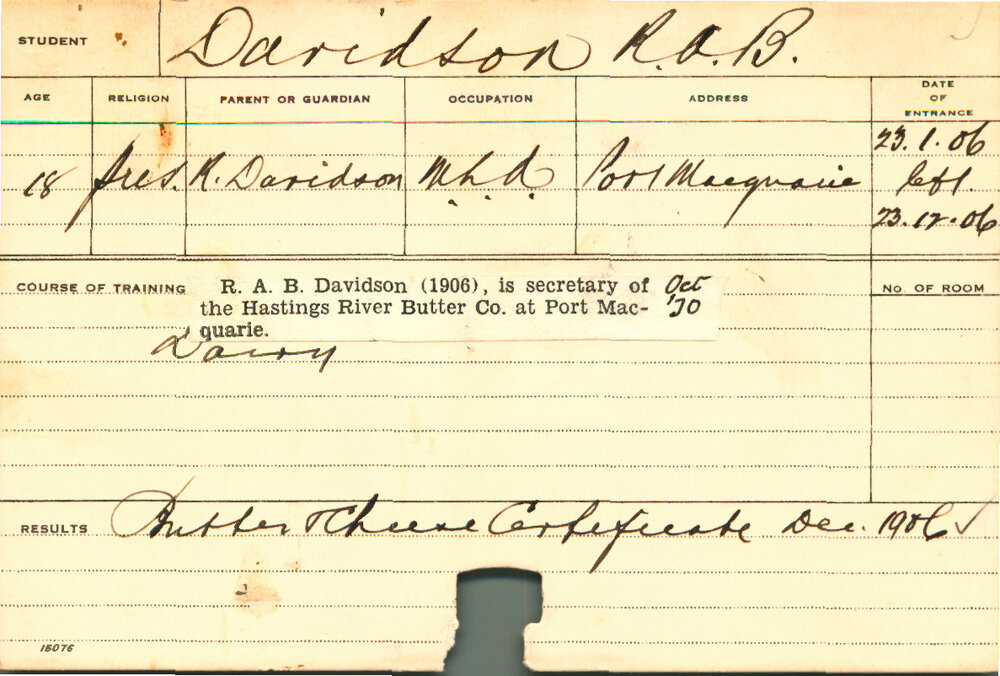 STUDENT Davidson R.A.B.
AGE RELIGION PARENT OR GUARDIAN OCCUPATION ADDRESS DATE OF ENTRANCE
23.1.06
18 Pres. R. Davidson Port Macquarie left
23.12.06
COURSE OF TRAINING R. A. B. Davidson (1906), is secretary of Oct No. OF ROOM
the Hastings River Butter Co. at Port Mac- '30
quarie.
Dairy
RESULTS Butter & Cheese Certificate Dec. 1906 ✓
15076